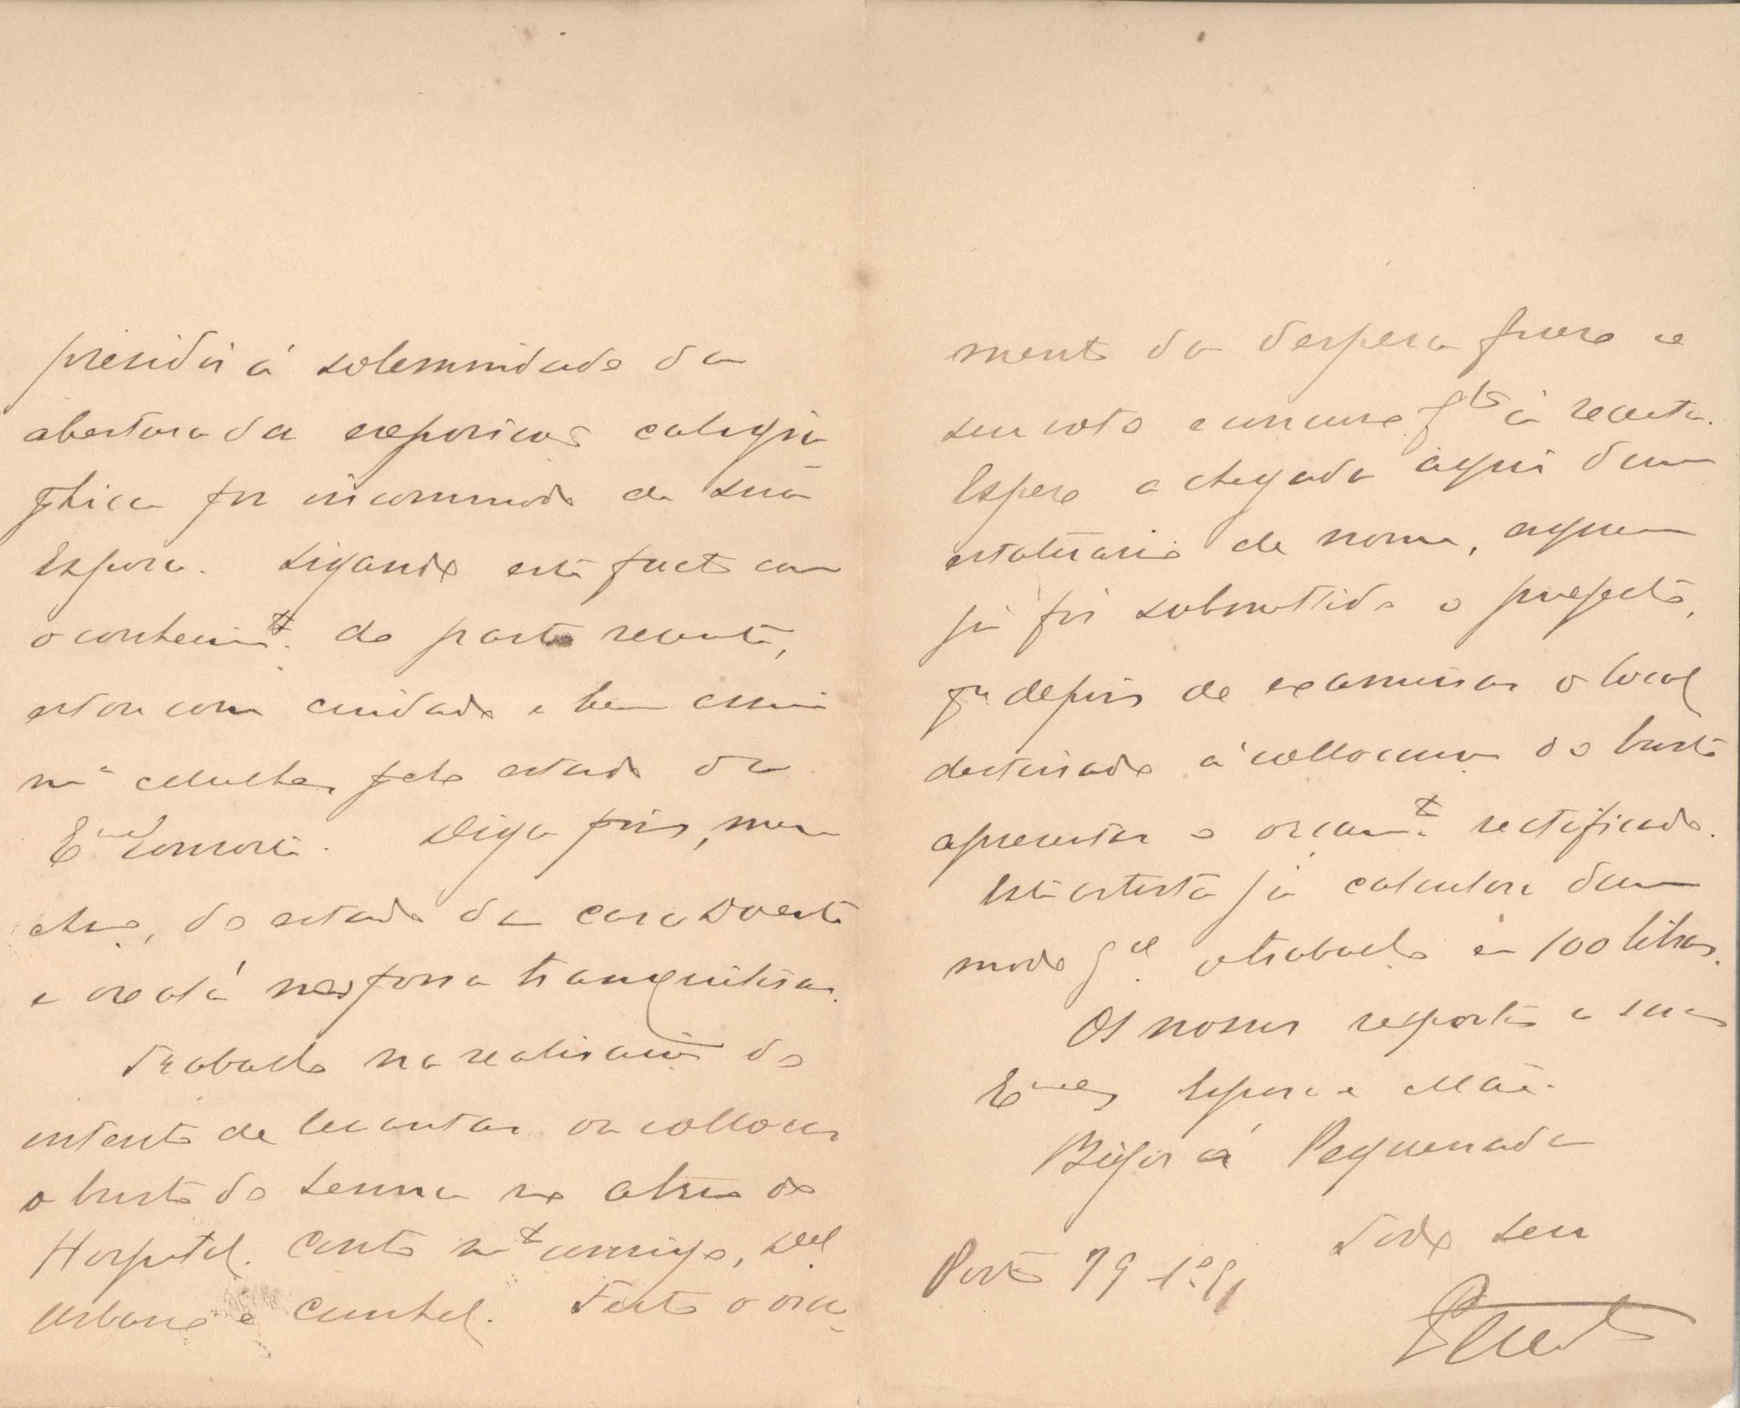 presidir á solemnidade da
abertura da exposição caligra
phica por incommodo de sua
Esposa. Ligando este facto com
o conhecim.to do parto recente,
estou com cuidado e bem assim
m.a mulher pelo estado da
E.ma Senhora. Diga pois, meu
do estado da casa Doente
e oxalá nos possa tranquilisar.
Trabalho na realisação do
intento de levantar ou collocar
o busto do Senna no atrio do
Hospital. Conto m.to comsigo,
Urbano e Cunhal. Feito o orça-
mento da despesa quero o
seu voto e concurso p.ta á receita.
Espero a chegada aqui dum
estatuario de nome, a quem
já foi submettido o projecto,
p.a depois de examinar o local
destinado á collocação do busto
apresentar o orçam.to rectificado.
Este artista já calculou dum
modo g.al o trabalho em 100 libras.
Os nossos respeitos a suas
E.mas Esposa e Mãe.
Beijos á Pequenada
Todo seu
Porto 19-1º-91